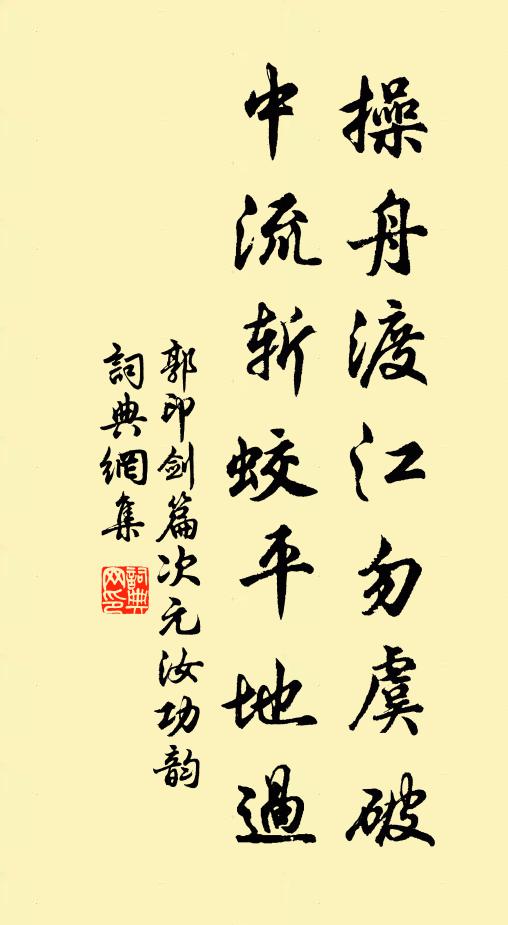 操舟渡江勿虞破
中流斬蛟平地過
郭印劍篇次元汝功韵
詞典網集
詞典网印